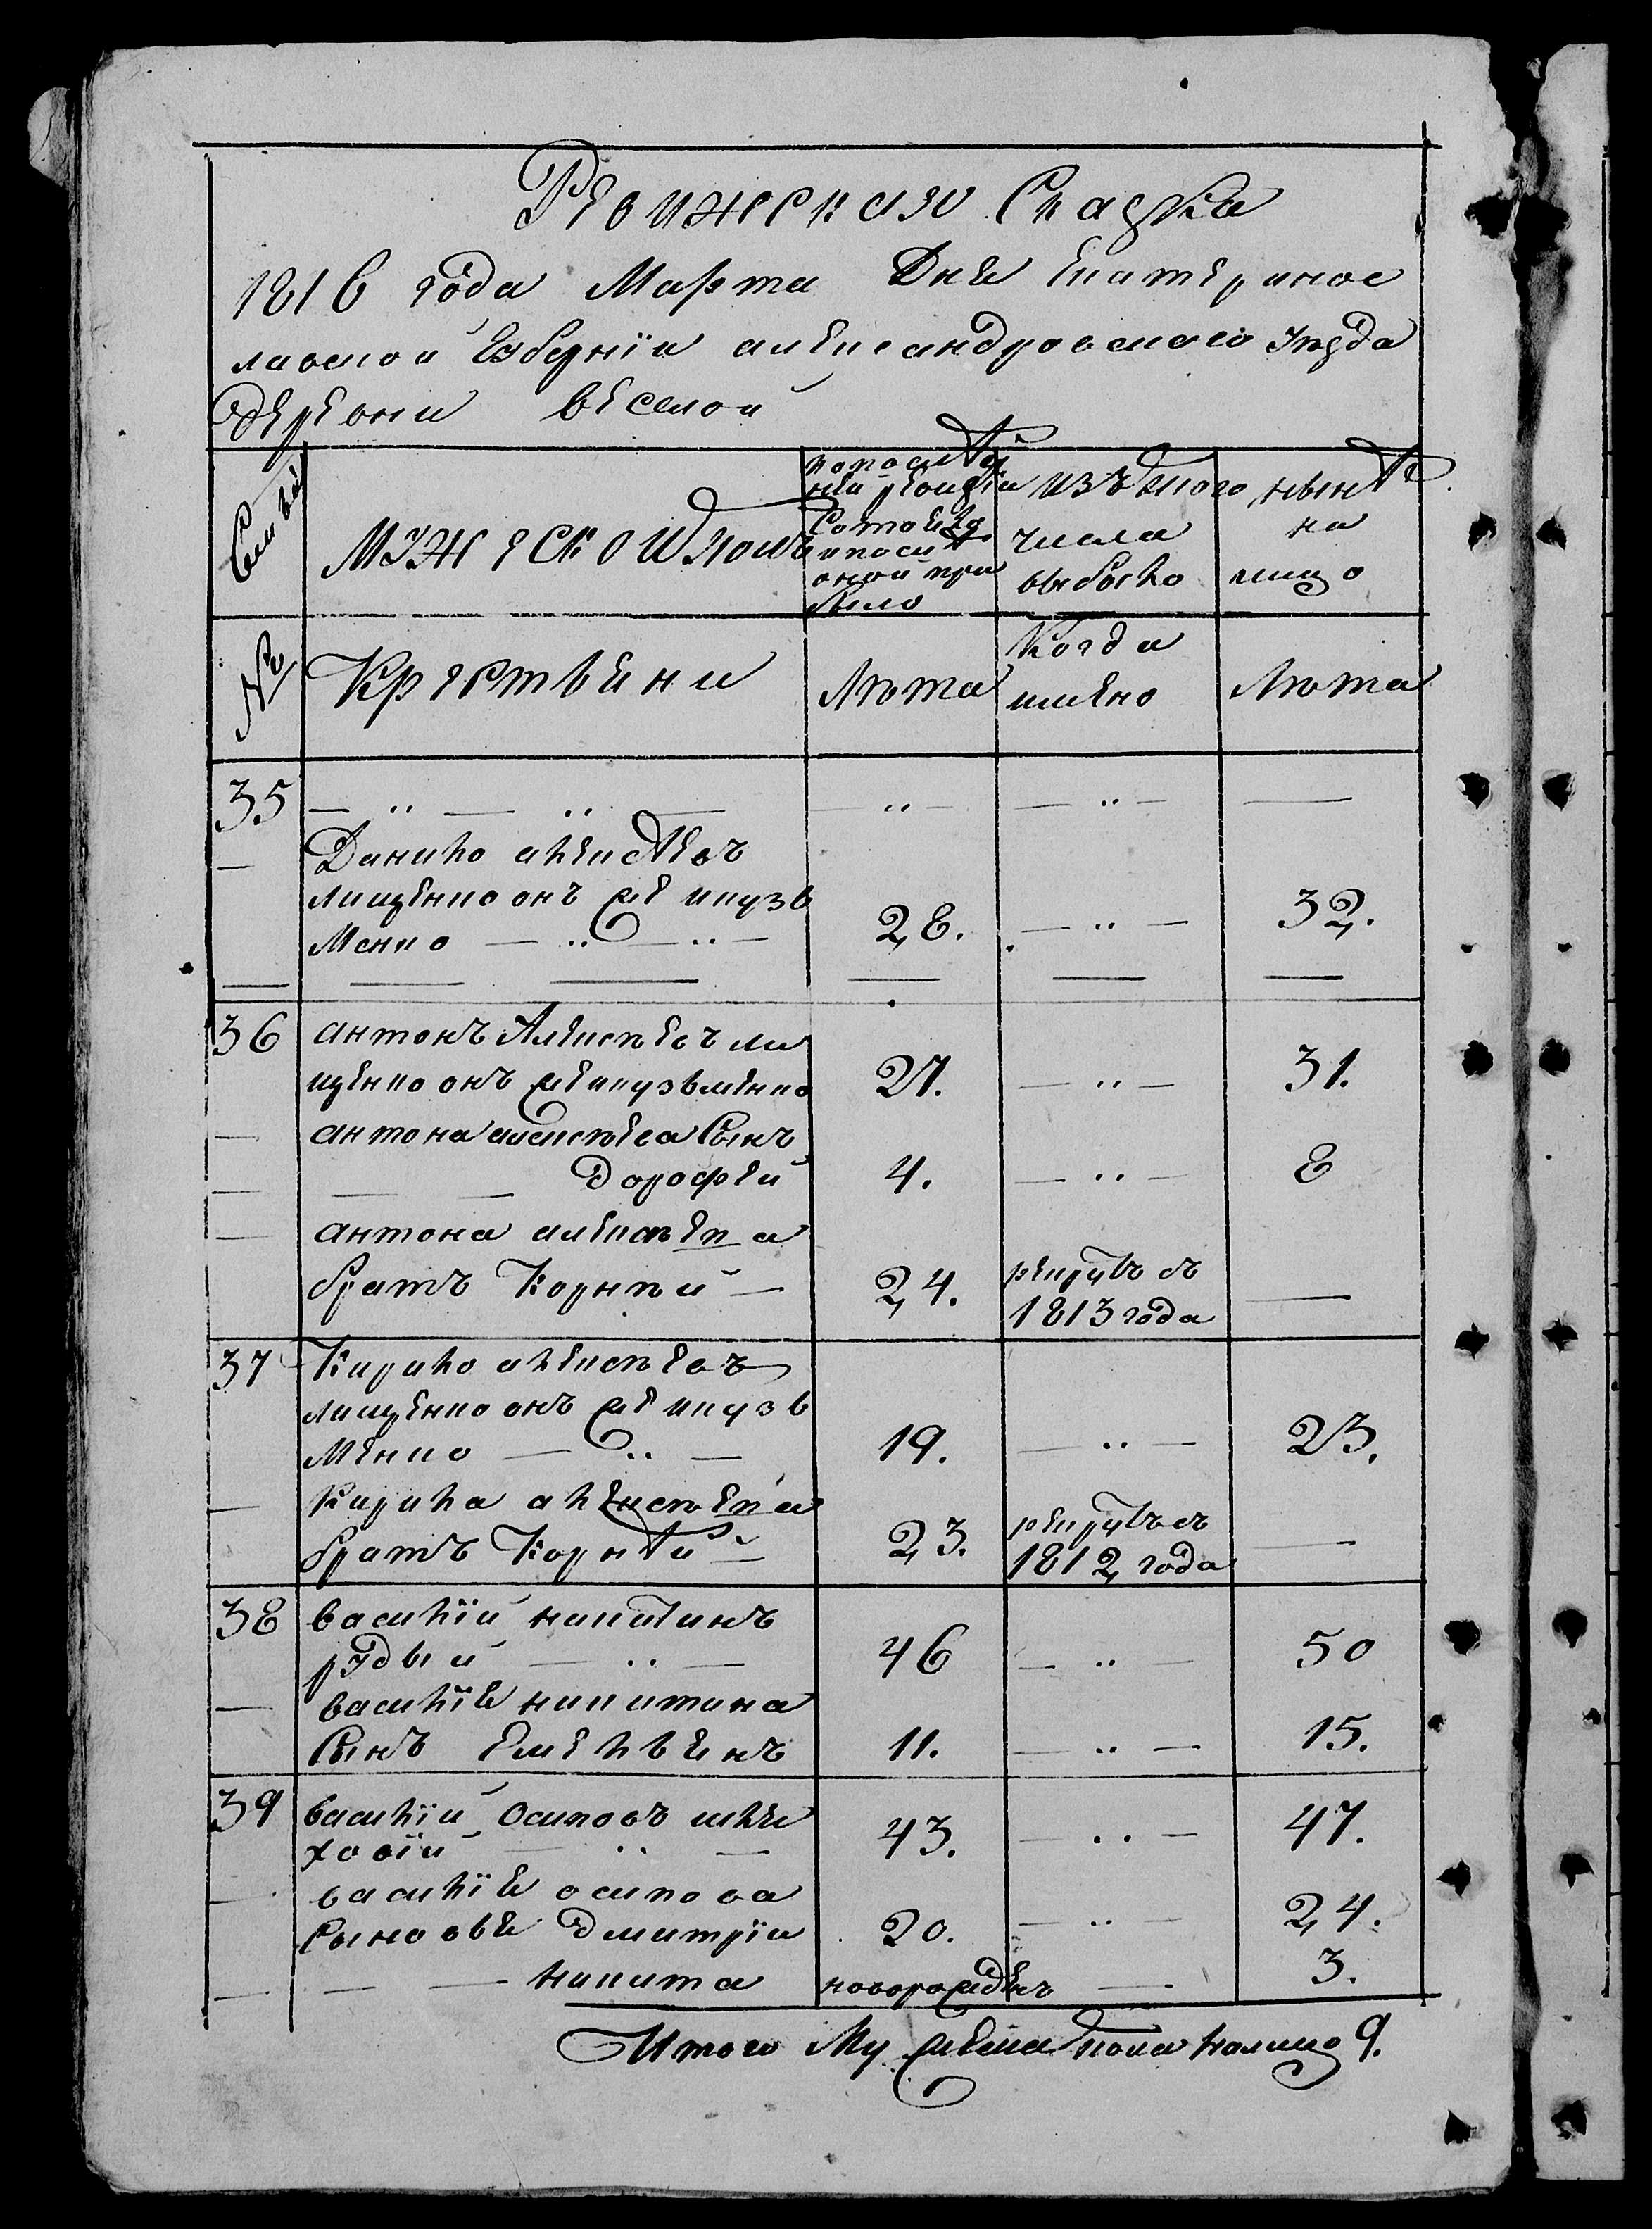 Ревижская Сказка
1816 года Марта Дня Екатеринос
лавской Губернїи александровскаго уѣзда
деревни веселой
Семьи
мужеской полъ
по послѣд
ней ревизїи
Состояло
и послѣ
оной при
было
изъ того
числа
выбыло
нынѣ
на
лицо
№
Крестьяни
Лѣта
Когда
имено
Лѣта
35 — ·· — ·· — — ·· — — ·· — —
— Данило алексѣевъ
лищенко онъ же и кузь
менко — ·· — ·· — 28. — ·· — 32.
36 антонъ Алексѣевъ ли
щенко онъ же и кузьменко 27. — ·· — 31.
— антона алексѣева Сынъ
— — — дорофей 4. — ·· — 8
— антона алексѣева
братъ Корнѣй — 24. рекрутъ съ 1813 года —
37 Кирило алексѣевъ
лищенко онъ же и кузь
Менко — ·· — 19. — ·· — 23.
— Кирила алексѣева
братъ Корнѣй — 23. рекрутъ съ 1812 года —
38 василїй никитинъ
рудый — ·· — 46 — ·· — 50
— василїя никитина
Сынъ Емельянъ 11. — ·· — 15.
39 василїй Осиповъ шле
ховїй — ·· — 43. — ·· — 47.
— василїя осипова
Сыновья дмитрїи 20. — ·· — 24.
— — — никита новорожденъ — 3.
Итого Мужеска пола налицо 9.